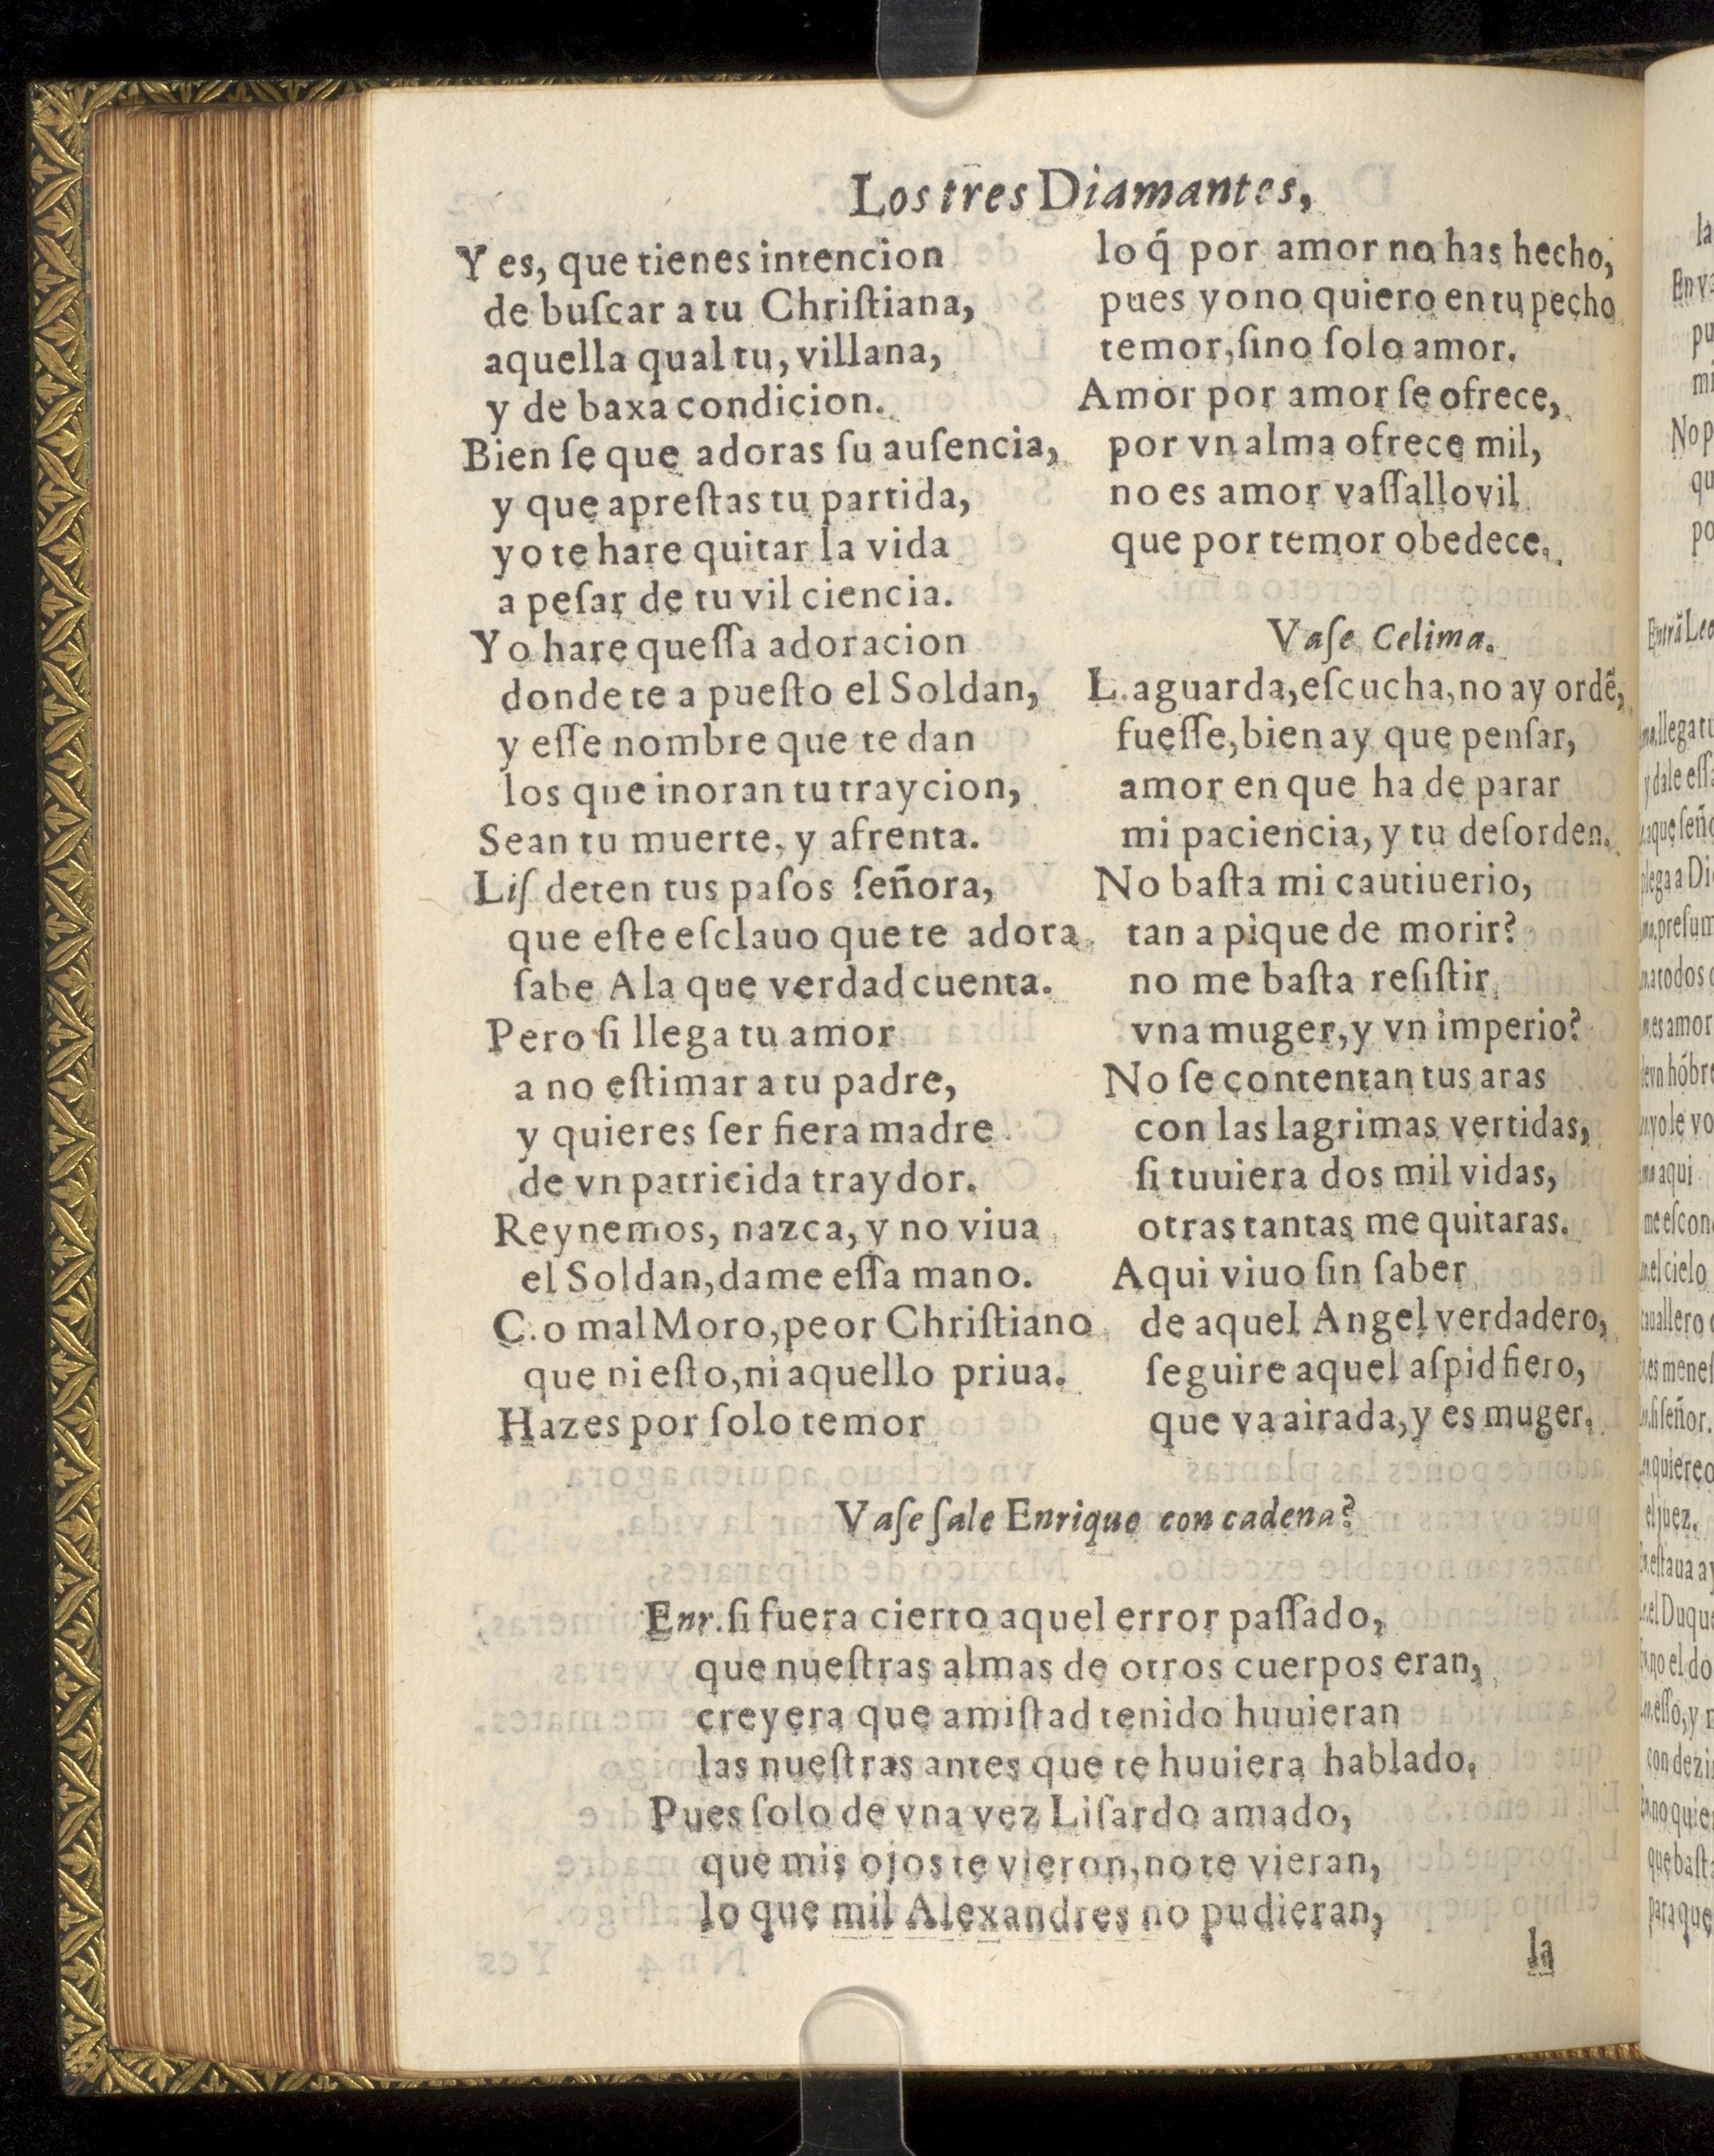 Los tres Diamantes,
Y es, que tienes intencion
de buſcar a tu Chriſtiana,
aquella qual tu, villana,
y de baxa condicion.
Bien ſe que adoras ſu auſencia,
y que apreſtas tu partida,
yo te hare quitar la vida
a peſar de tu vil ciencia.
Yo hare queſſa adoracion
donde te a pueſto el Soldan,
y eſſe nombre que te dan
los que inoran tu traycion,
Sean tu muerte, y afrenta.
Liſ deten tus paſos ſeñora,
que eſte eſclauo que te adora
ſabe Ala que verdad cuenta.
Pero ſi llega tu amor
a no eſtimar a tu padre,
y quieres ſer fiera madre
de vn patricida traydor.
Reynemos, nazca, y no viua
el Soldan, dame eſſa mano.
C. o mal Moro, peor Chriſtiano
que ni eſto, ni aquello priua.
Hazes por ſolo temor
lo q́ por amor no has hecho,
pues yo no quiero en tu pecho
temor, ſino ſolo amor.
Amor por amor ſe ofrece,
por vn alma ofrece mil,
no es amor vaſſallo vil
que por temor obedece.
Vaſe Celima.
L. aguarda, eſcucha, no ay ordẽ,
fueſſe, bien ay que penſar,
amor en que ha de parar
mi paciencia, y tu deſorden.
No baſta mi cautiuerio,
tan a pique de morir?
no me baſta reſiſtir
vna muger, y vn imperio?
No ſe contentan tus aras
con las lagrimas vertidas,
ſi tuuiera dos mil vidas,
otras tantas me quitaras.
Aqui viuo ſin ſaber
de aquel Angel verdadero,
ſeguire aquel aſpid fiero,
que va airada, y es muger.
Vaſe ſale Enrique con cadena?
Enr. ſi fuera cierto aquel error paſſado,
que nueſtras almas de otros cuerpos eran,
creyera que amiſtad tenido huuieran
las nueſtras antes que te huuiera hablado.
Pues ſolo de vna vez Liſardo amado,
que mis ojos te vieron, no te vieran,
lo que mil Alexandres no pudieran,
la